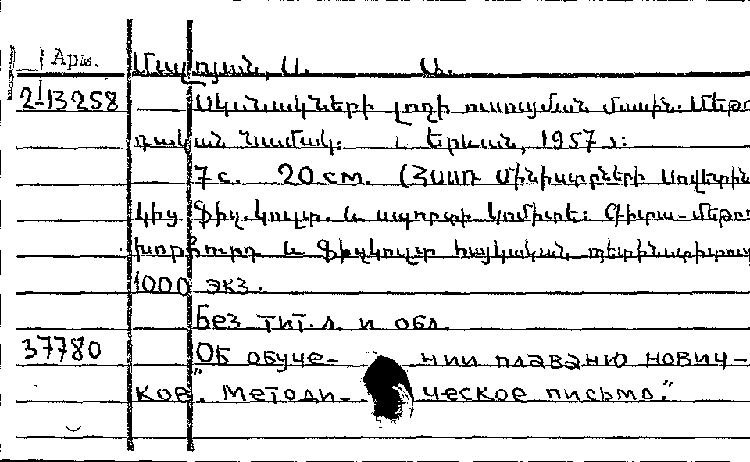 Арм. Մալոյան, Ա. Ա.
2-13258 Սկսնակների լողի ուսուցման մասին: Մեթո
դական նամակ: Երևան, 1957 թ:
7 с. 20 см. (ՀՍՍՌ Մինիստրների Սովետին
կից Ֆիզ. կուլտ. և սպորտի կոմիտե: Գիտա-մեթո
խորհուրդ և Ֆիզկուլտ հայկական պետինստիտուտ
1000 экз.
Без тит. л. и обл.
37780 "Об обуче- нии плаванию нович-
ков". Методи- ческое письмо."